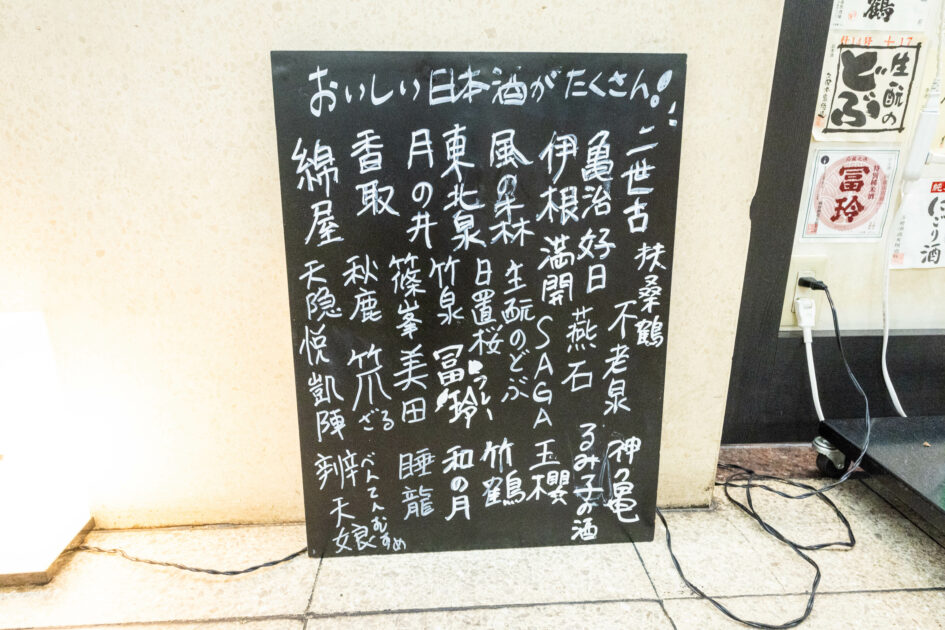 おいしい日本酒がたくさん!!
二世古 扶桑鶴
不老泉
亀治好日 燕石 るみ子の酒
伊根満開 SAGA 玉櫻
風の森 生酛のどぶ 竹鶴
東北泉 日置桜
月の井 竹泉 冨玲 和の月
香取 篠峯 美田 睡龍
綿屋 秋鹿 笊ざる
天隠 悦凱陣
辨天娘 べんてんむすめ
鶴
生酛の
どぶ
特別純米酒
冨玲
にごり酒